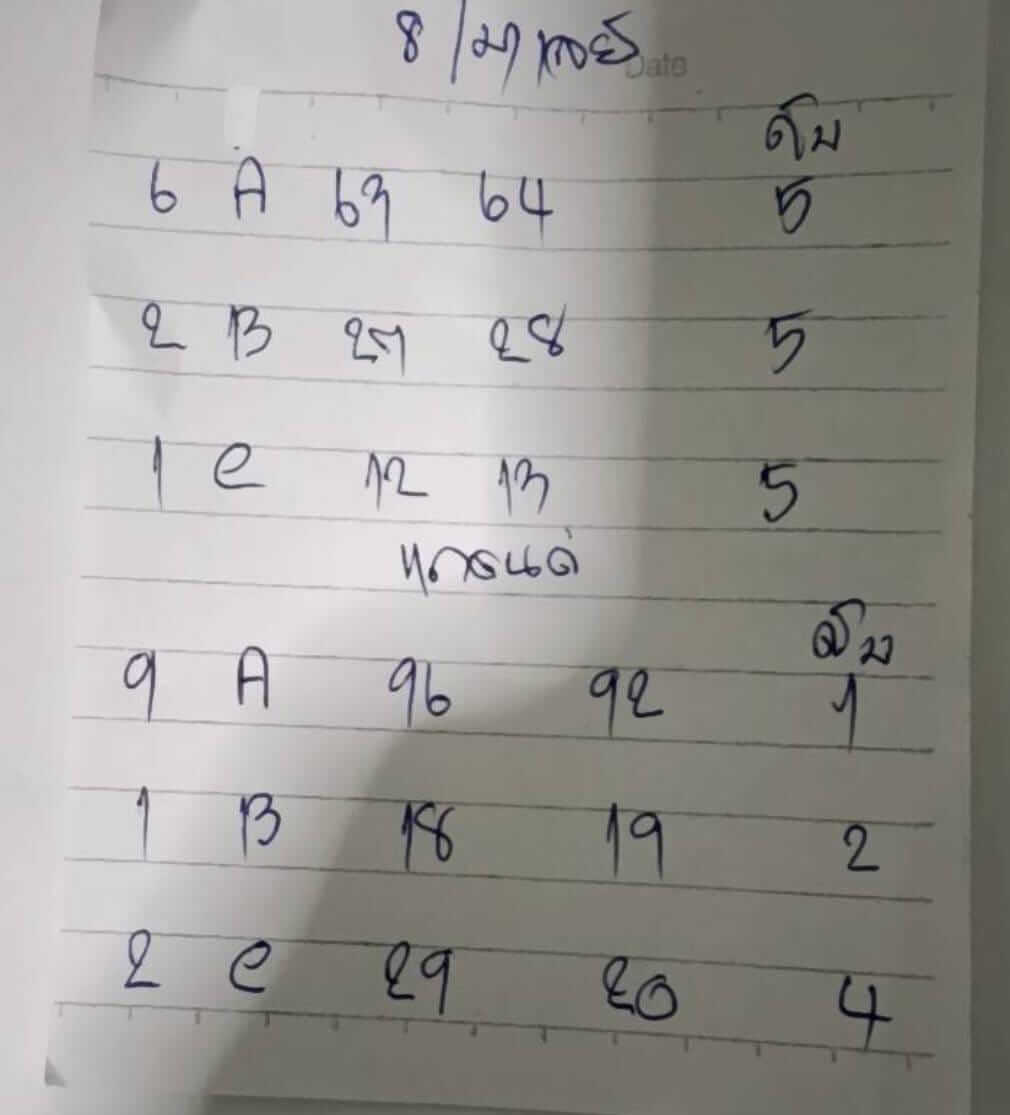 8 / มาเลย์
Date
ดับ
6 A 63 64 5
2 B 27 28 5
1 C 12 13 5
ดับ
9 A 96 92 1
1 B 18 19 2
2 C 29 20 4